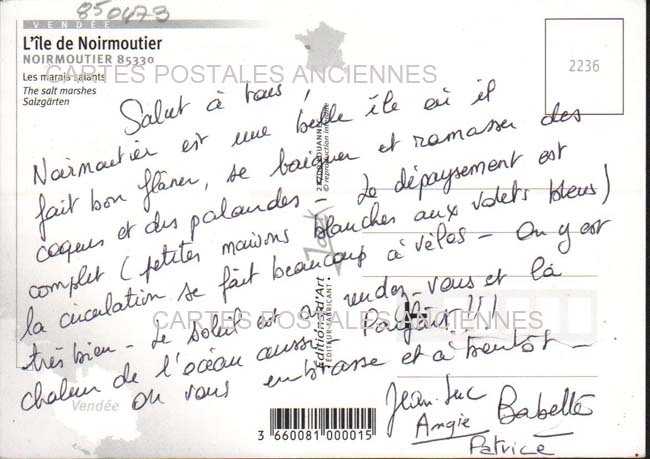 850473
VENDÉE
L'île de Noirmoutier
NOIRMOUTIER 85330
Les marais salants
The salt marshes
Salzgärten
2236
CARTES POSTALES ANCIENNES
Salut à tous !
Noirmoutier est une belle île où il
fait bon flâner, se baigner et ramasser des
coques et des palourdes - Le dépaysement est
complet (petites maisons blanches aux volets bleus)
la circulation se fait beaucoup à vélos - On y est
très bien - Le soleil est au rendez-vous et la
chaleur de l'océan aussi - Pourvu !!!
On vous embrasse et à bientôt -
Jean-Luc
Angie Babette
Patrice
CARTES POSTALES ANCIENNES
Éditions d'Art
ÉDITEUR-FABRICANT
© reproduction interdite
Vendée
3 660081 000015